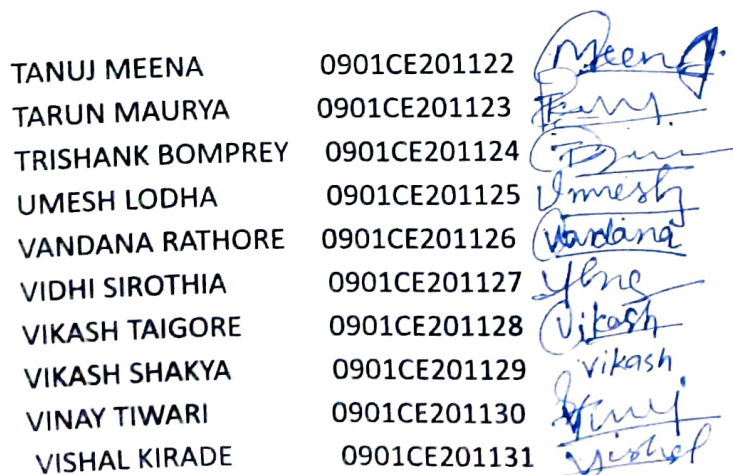 TANUJ MEENA 0901CE201122 Meena
TARUN MAURYA 0901CE201123
TRISHANK BOMPREY 0901CE201124
UMESH LODHA 0901CE201125 Umesh
VANDANA RATHORE 0901CE201126 Vandana
VIDHI SIROTHIA 0901CE201127
VIKASH TAIGORE 0901CE201128 Vikash
VIKASH SHAKYA 0901CE201129 vikash
VINAY TIWARI 0901CE201130
VISHAL KIRADE 0901CE201131 Vishal